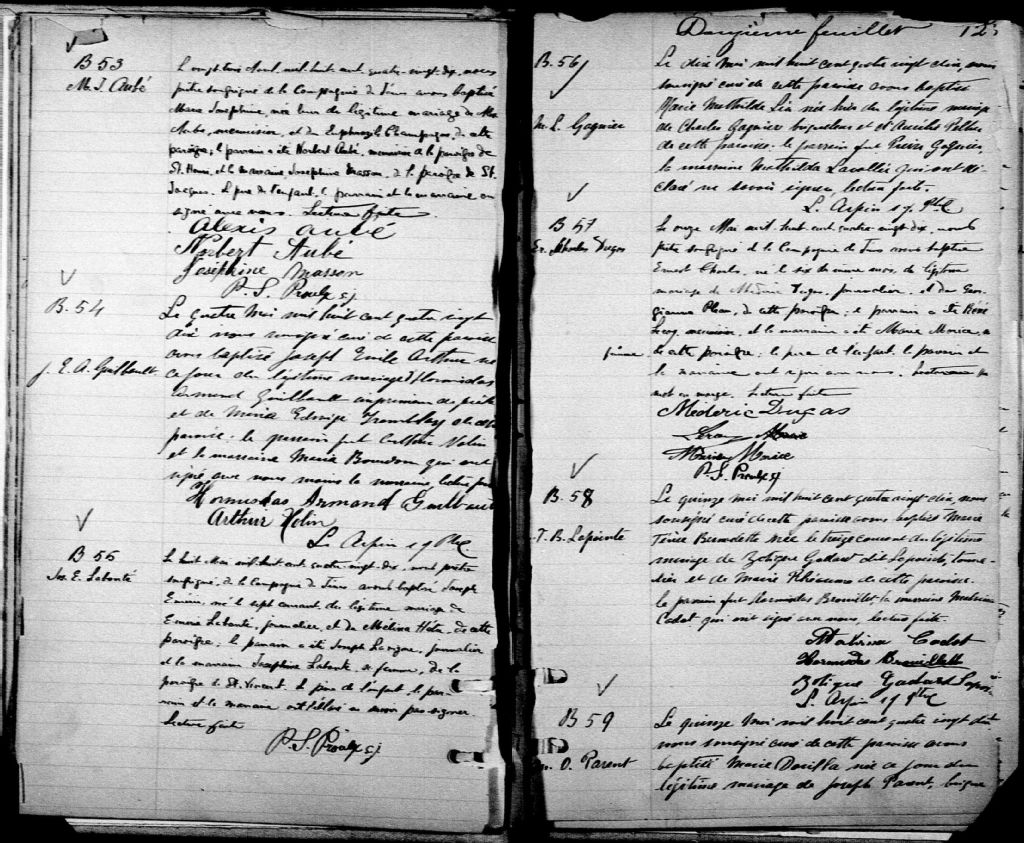 B 53
M. J. Aubé
Le vingt trois Avril, mil huit cent quatre-vingt-dix, nous
prêtre soussigné de la Compagnie de Jésus avons baptisé
Marie Joséphine, née hier du légitime mariage de
Aubé, menuisier, et de Euphrosyle Champagne, de cette
paroisse; le parrain a été Norbert Aubé, menuisier de la paroisse de
St. Henri, et la marraine Josephine Masson, de la paroisse de St.
Jacques. Le père de l'enfant, le parrain et la marraine ont
signé avec nous. Lecture faite.
Alexis Aubé
Norbert Aubé
Joséphine Masson
P. S. Proulx sj
B. 54
J. E. A. Guilbault
Le quatre Mai mil huit cent quatre vingt
dix nous soussigné curé de cette paroisse
avons baptisé Joseph Emile Arthur né
ce jour du légitime mariage d'Hormisdas
Armond Guilbault
et de Maria Edwige Tremblay de cette
paroisse. le parrain fut Arthur
et la marraine Marie Bourdon qui ont
signé avec nous moins la marraine lecture faite
Hormisdas Armond Guilbault
Arthur
L. Arpin s.j. Ptre
B 55
Jos. E. Labonté
Le huit Mai mil huit cent quatre-vingt-dix, nous prêtre
soussigné, de la Compagnie de Jésus avons baptisé Joseph
né le sept courant du légitime mariage de
Labonté, journalier, et de Mélina de cette
paroisse; le parrain a été Joseph Lavigne, journalier
et la marraine Josephine Labonté, sa femme, de la
paroisse de St. Vincent. Le père de l'enfant, le par-
rain et la marraine ont déclaré ne savoir pas signer.
Lecture faite
P. S. Proulx sj
Douzième feuillet 12
B. 56
M. L. Gagnier
Le dix Mai mil huit cent quatre vingt dix, nous
soussigné curé de cette paroisse avons baptisé
Marie Mathilde Léa née hier du légitime mariage
de Charles Gagnier briqueleur et d'Aurélie
de cette paroisse. le parrain fut Pierre Gagnier,
la marraine Mathilda qui ont dé-
claré ne savoir signer, lecture faite.
L. Arpin s.j. Ptre
B 57
Er. Charles Dugas
Le onze Mai mil huit cent quatre vingt dix, nous
prêtre soussigné de la Compagnie de Jésus avons baptisé
Ernest Charles, né le six du même mois, du légitime
mariage de Médéric Dugas, journalier, et de Geor-
gianna de cette paroisse; le parrain a été René
Leroy, menuisier, et la marraine a été Marie Morice, sa
femme
de cette paroisse; le père de l'enfant, le parrain et
la marraine ont signé avec nous.
mot en marge. Lecture faite
Médéric Dugas
Leroy
Morice
P. S. Proulx sj
B. 58
T. B. Lapointe
Le quinze mai mil huit cent quatre vingt dix, nous
soussigné curé de cette paroisse avons baptisé Marie
Bernadette née le treize courant du légitime
mariage de Zotique Godard dit Lapointe,
et de Marie de cette paroisse.
le parrain fut Hormisdas Brouillet, la marraine Malvina
Cadot qui ont signé avec nous, lecture faite.
Malvina Cadot
Hormisdas Brouillette
Zotique Godard
L. Arpin s.j. Ptre
B 59
D. Parent
Le quinze Mai mil huit cent quatre vingt dix
nous soussigné curé de cette paroisse avons
baptisé Marie Dorilla née ce jour du
légitime mariage de Joseph Parent, brique